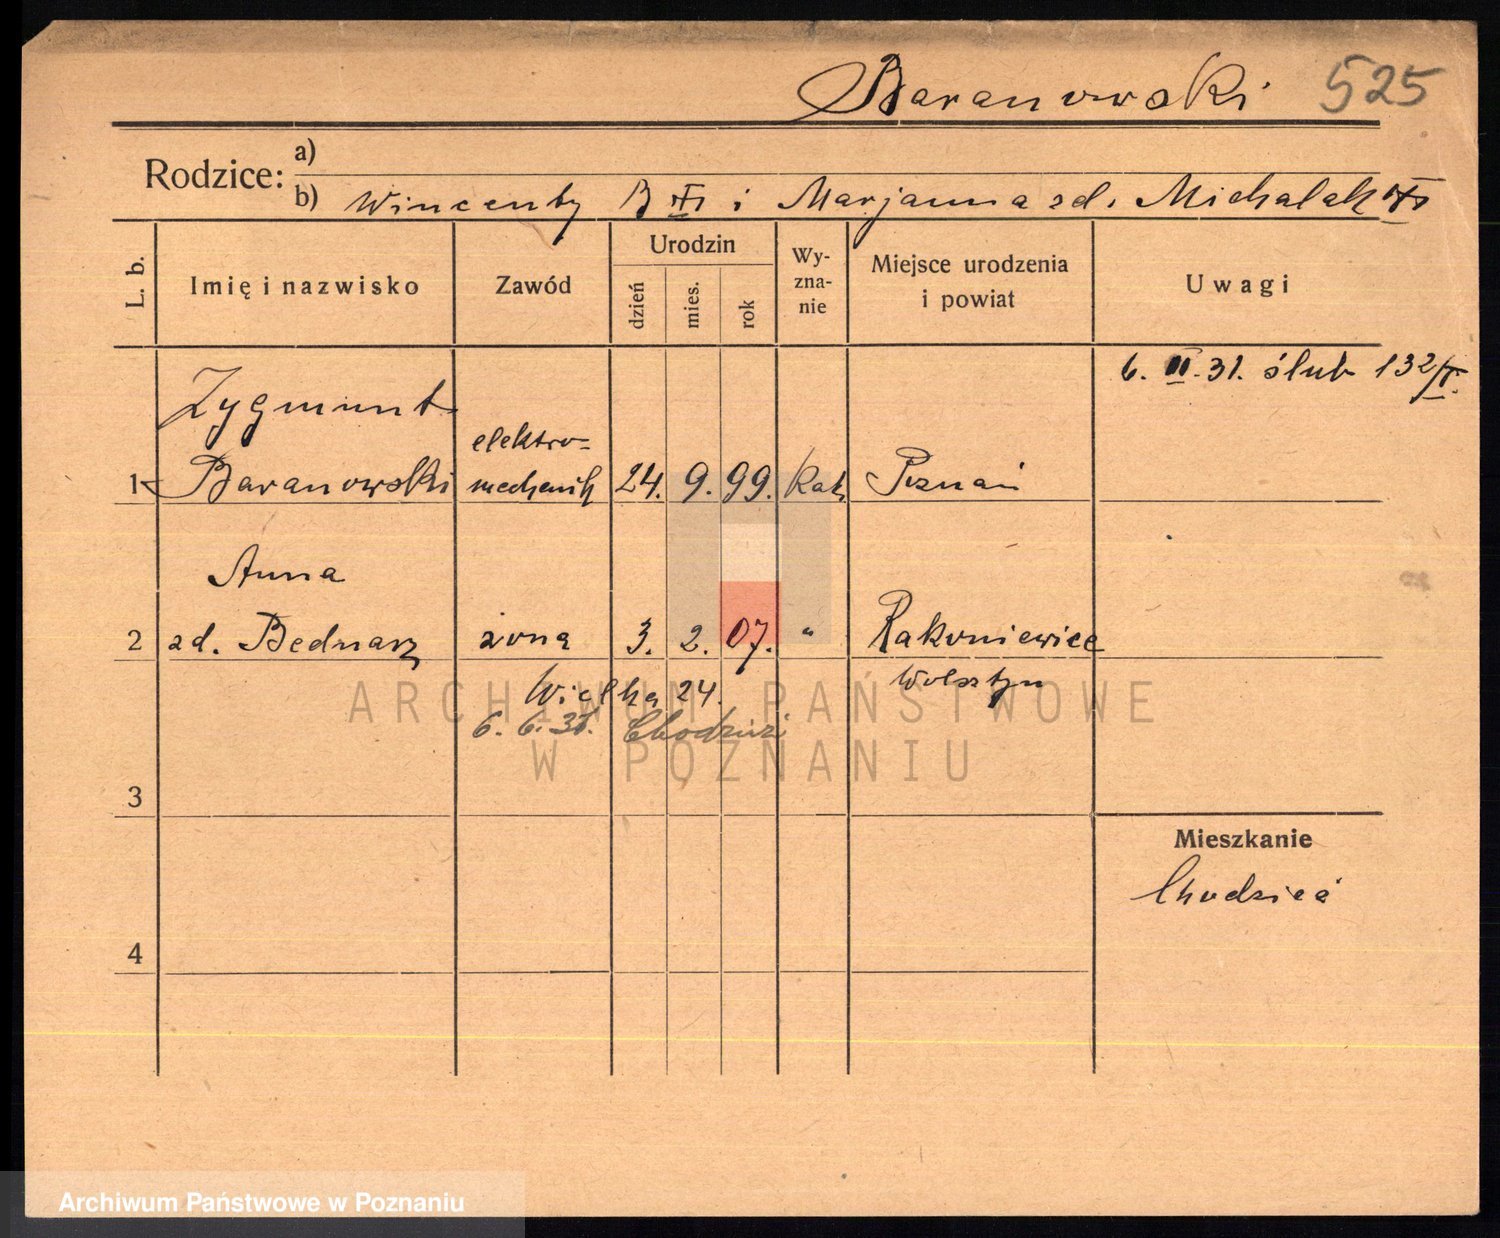 Baranowski 525
Rodzice: a)
b) Wincenty B i Marjanna zd. Michalak
L. b.
Imię i nazwisko
Zawód
Urodzin
dzień
mies.
rok
Wy-
zna-
nie
Miejsce urodzenia
i powiat
Uwagi
6. II. 31. ślub 132/I.
Zygmunt
elektro-
1 Baranowski mechanik 24. 9. 99. kat. Poznań
Anna
2 zd. Bednarz żona 3. 2. 07. " Rakoniewice
Wolsztyn
Wielka 24.
6. 6. 31. Chodzież
ARCHIWUM PAŃSTWOWE
W POZNANIU
3
Mieszkanie
Chodzież
4
Archiwum Państwowe w Poznaniu